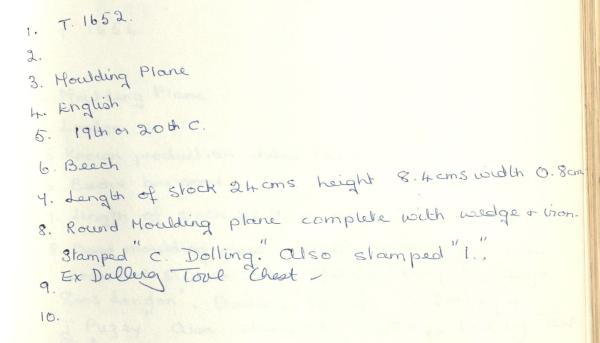 1. T. 1652.
2.
3. Moulding Plane
4. English
5. 19th or 20th C.
6. Beech
7. Length of stock 24cms height 8.4cms width 0.8cm
8. Round Moulding plane complete with wedge & iron.
Stamped "C. Dolling." Also stamped "1".
9. Ex Dolling Tool Chest
10.